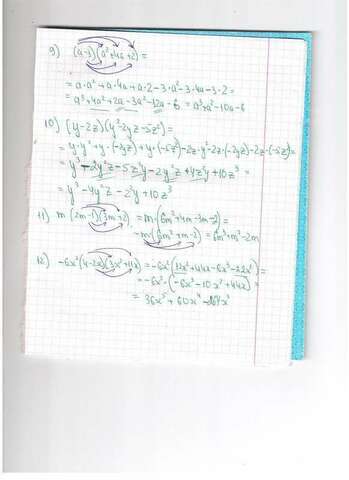 9) (a-3)(a²+4a+2)=
= a·a²+a·4a+a·2-3·a²-3·4a-3·2=
= a³+4a²+2a-3a²-12a-6 = a³+a²-10a-6
10) (y-2z)(y²-2yz-5z²)=
= y·y²+y·(-2yz)+y·(-5z²)-2z·y²-2z·(-2yz)-2z·(-5z²)=
= y³-2y²z-5z²y-2y²z+4z²y+10z³=
= y³-4y²z-z²y+10z³
11) m(2m-1)(3m+2)=m(6m²+4m-3m-2)=
=m(6m²+m-2)=6m³+m²-2m
12) -6x²(4-2x)(3x²+11x)=-6x²(12x²+44x-6x³-22x²)=
=-6x²·(-6x³-10x²+44x)=
= 36x⁵+60x⁴-264x³